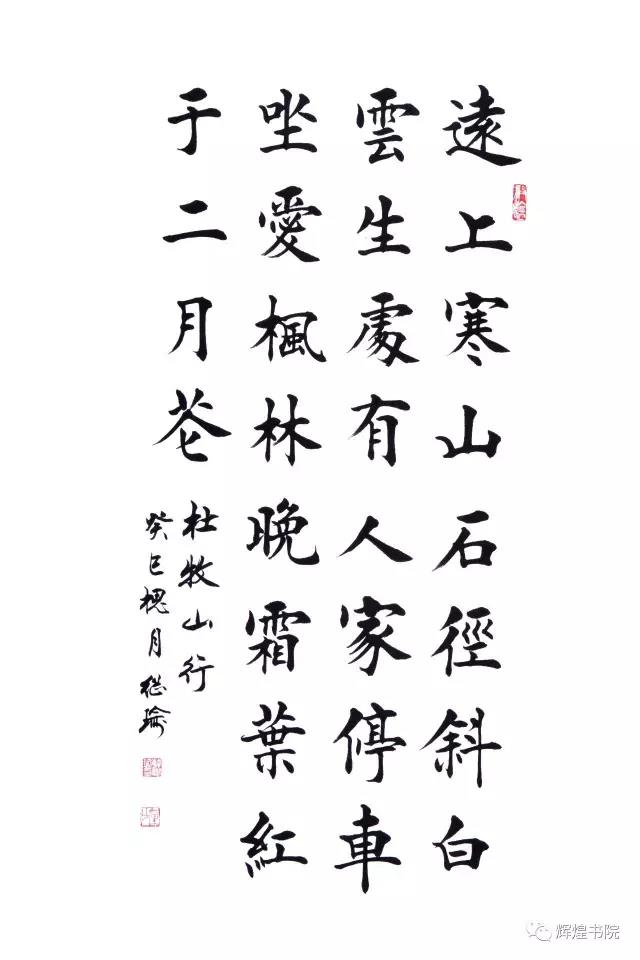 遠上寒山石徑斜白
雲生處有人家停車
坐愛楓林晚霜葉紅
于二月花
杜牧山行
癸巳槐月继瑜
辉煌书院